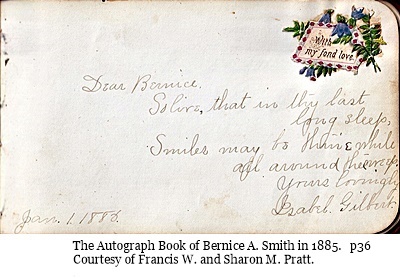 With
my fond love.
Dear Bernice.
So live, that in thy last
long sleep,
Smiles may be thine while
all around thee weep,
Yours lovingly
Isabel. Gilbert
Jan. 1. 1885.
The Autograph Book of Bernice A. Smith in 1885. p36
Courtesy of Francis W. and Sharon M. Pratt.